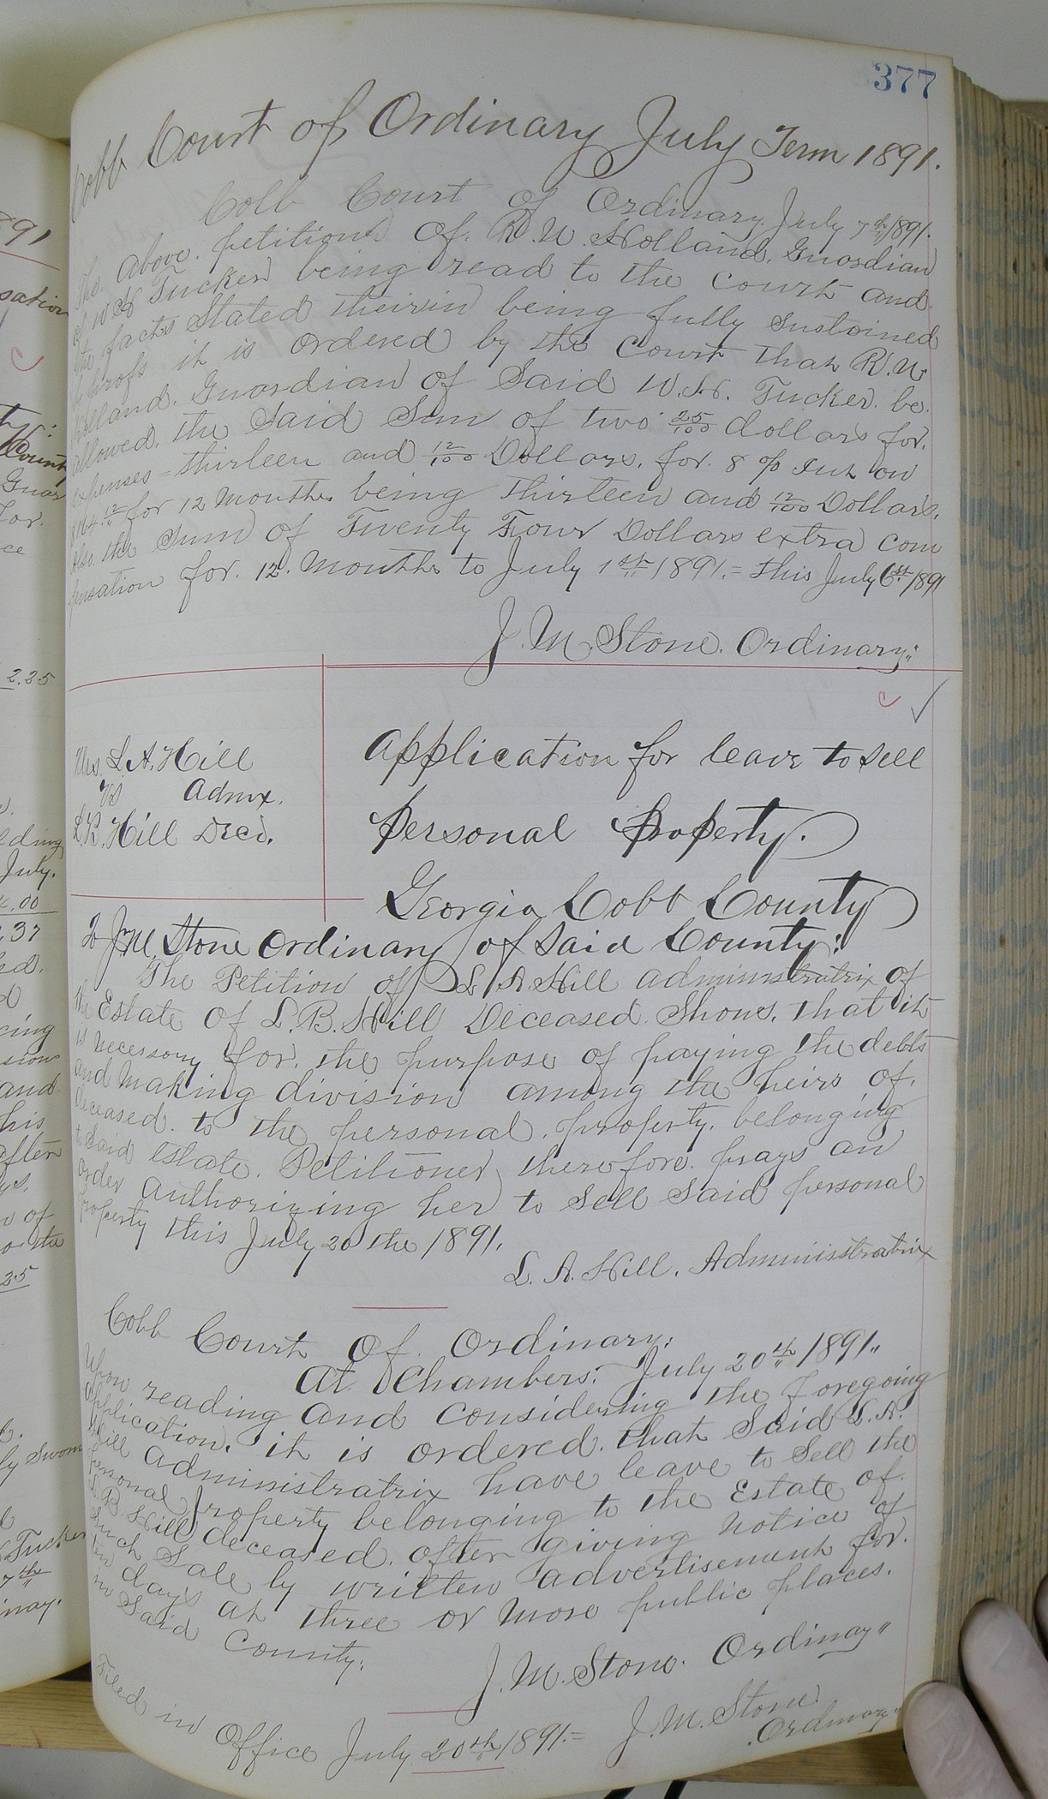 377
Cobb Court of Ordinary July Term 1891.
Cobb Court of Ordinary July 7th 1891.
The above petition of R. W. Holland, Guardian
of W H Tucker being read to the Court and
the facts Stated therein being fully Sustained
it is ordered by the Court that R. W.
Holland. Guardian of Said W. H. Tucker. be
allowed. the Said Sum of two 25/100 dollars for.
expenses - thirteen and 12/100 Dollars. for 8 % Int on
for 12 Months being thirteen and 12/100 Dollars.
Also the Sum of Twenty Four Dollars extra com
pensation for. 12. Months to July 1st 1891. = this July 6th 1891
J. M. Stone. Ordinary:
Mrs. L. A. Hill
vs Admx.
L. B. Hill Decd.
Application for leave to Sell
Personal Property.
Georgia Cobb County
To J. M. Stone Ordinary of Said County:
The Petition of L. A. Hill administratrix of
the Estate of L. B. Hill Deceased. Shows. that it
is necessary for. the purpose of paying the debts
and making division among the heirs of.
deceased. to the personal. property. belonging
to Said Estate. Petitioner therefore. prays an
order authorizing her to Sell Said personal
property this July 20 the 1891.
L. A. Hill. Administratrix
Cobb Court of Ordinary:
At Chambers: July 20th 1891.
Upon reading and considering the foregoing
application. it is ordered. that Said L. A.
Hill administratrix have leave to Sell the
personal property belonging to the Estate of
L. B. Hill deceased. after giving notice of
Such Sale by written advertisement for.
ten days at three or more public places.
in Said County:
J. M. Stone. Ordinary
Filed in Office July 20th 1891. = J. M. Stone
Ordinary.